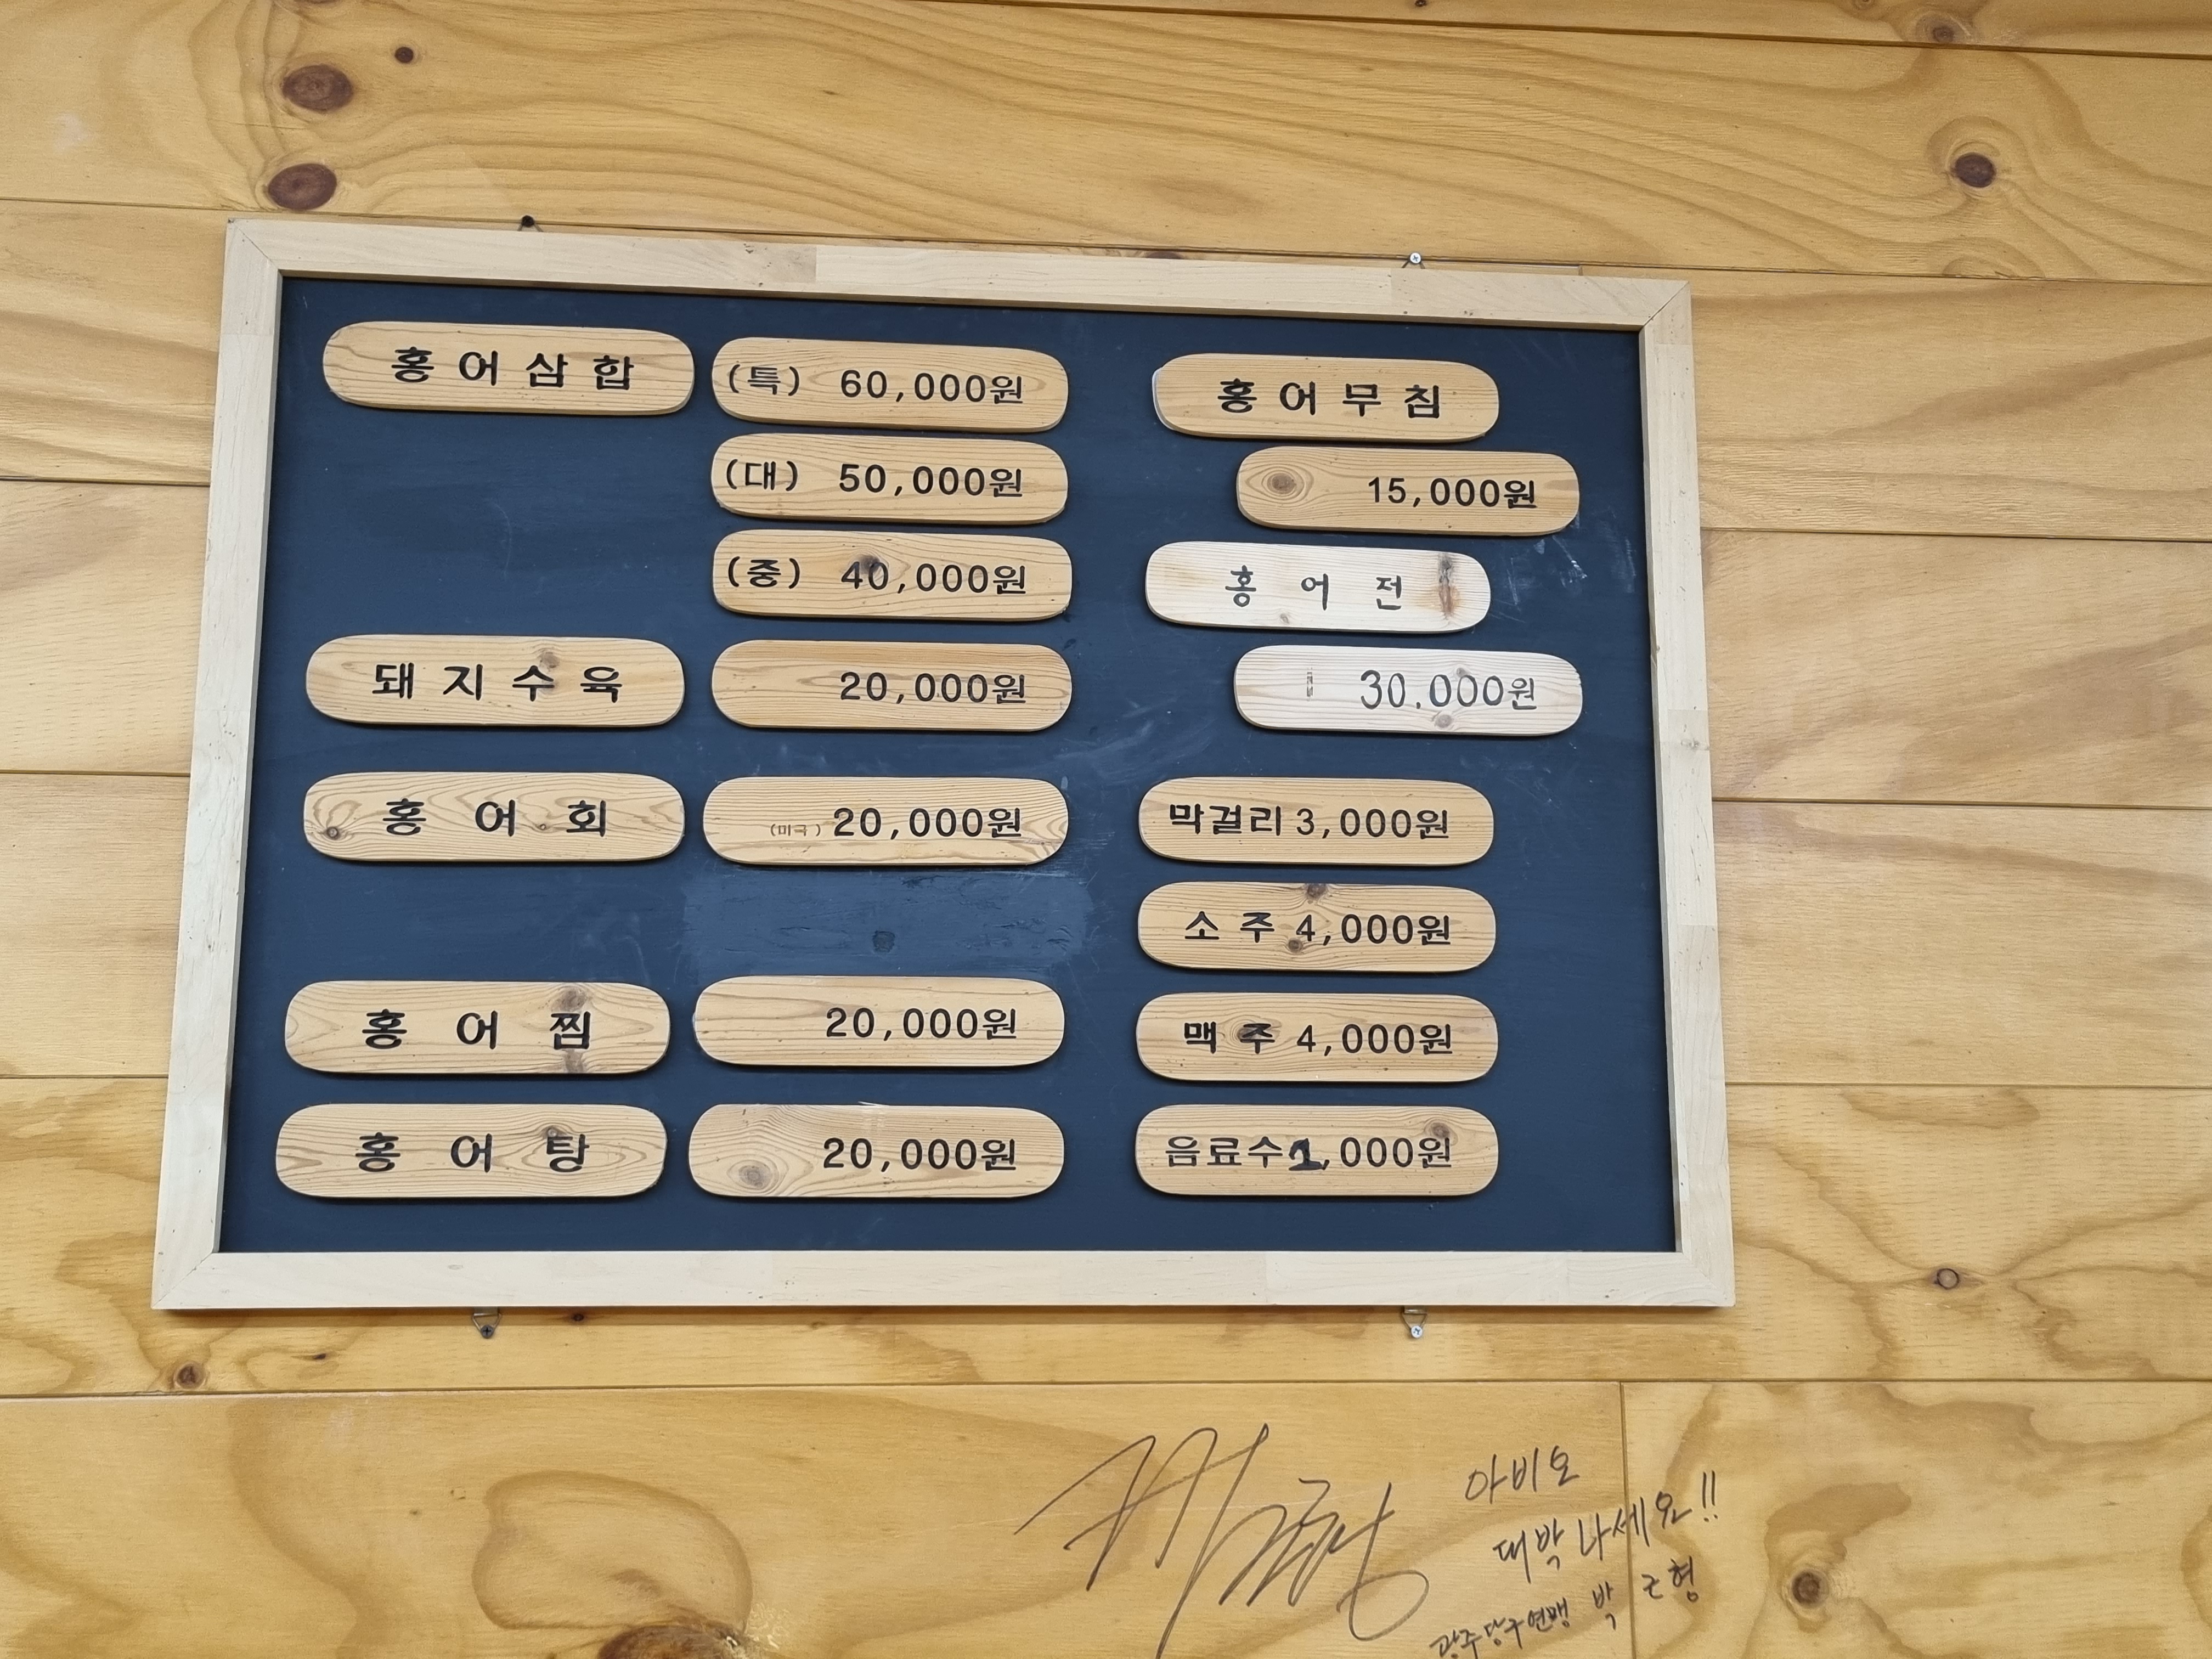 홍어삼합 (특) 60,000원
(대) 50,000원
(중) 40,000원
돼지수육 20,000원
홍어회 (미국) 20,000원
홍어찜 20,000원
홍어탕 20,000원
홍어무침
15,000원
홍어전
30.000원
막걸리 3,000원
소주 4,000원
맥주 4,000원
음료수 1,000원
아비오
대박 나세요!!
광주당구연맹 박근형